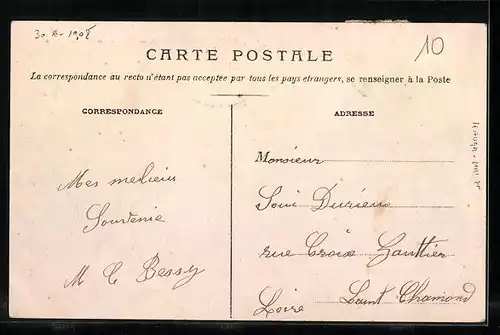 30-8-1908
10
CARTE POSTALE
La correspondance au recto n'étant pas acceptée par tous les pays étrangers, se renseigner à la Poste
CORRESPONDANCE
Mes meilieurs
Souvenir
M C Bessy
ADRESSE
Monsieur
Durieu
rue Croix Gauthier
Saint Chamond
Loire